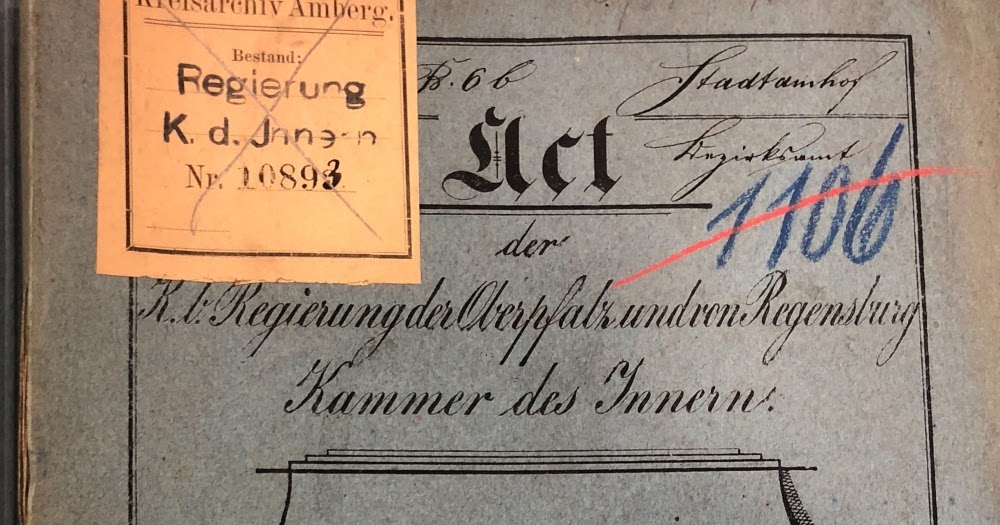 Kreisarchiv Amberg.
Bestand:
Regierung
K. d. Innern
Nr. 10893
R. 6 b
Stadtamhof
Act
Bezirksamt
1106
der
K. b. Regierung der Oberpfalz und von Regensburg
Kammer des Innern.